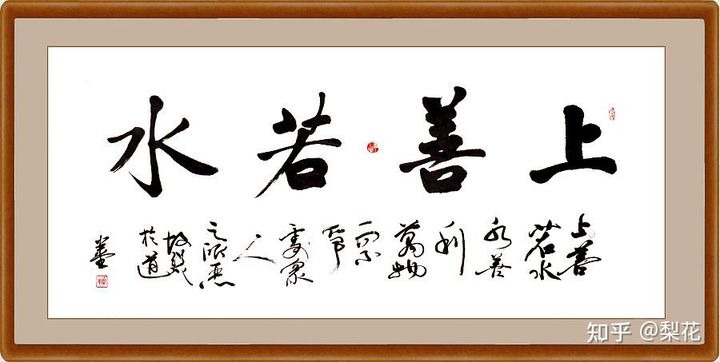 上善若水
上善
若水
水善
利
萬物
而不
爭
處眾
人
之所惡
故幾
於道
知乎 @梨花